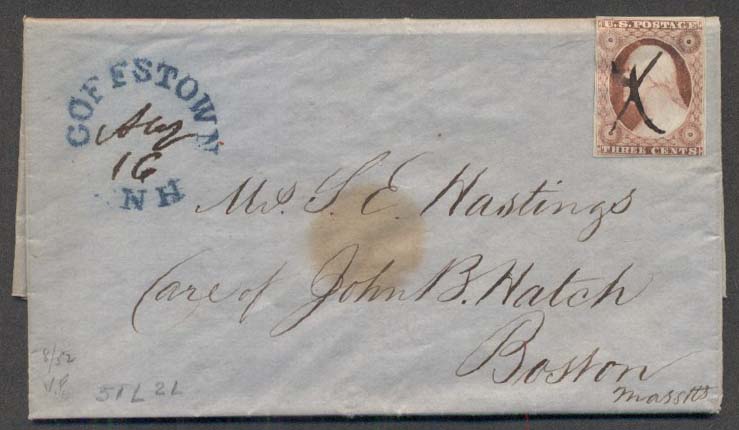 GOFFSTOWN
Aug
16
NH
U.S. POSTAGE
THREE CENTS
Mrs. S. E. Hastings
Care of John B. Hatch
Boston
Masstts
8/52
51L 2L